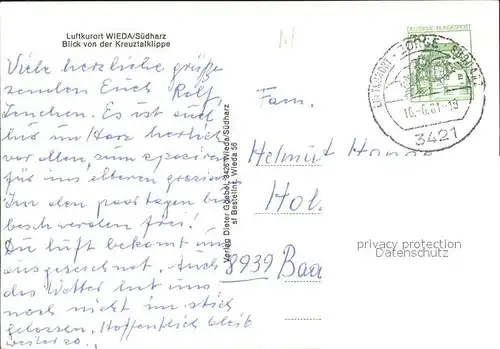 Luftkurort WIEDA/Südharz
Blick von der Kreuztalklippe
Viele herzliche grüße
senden Euch Rolf,
Lenchen. Es ist auch
hier im Harz herrlich
vor allem zum spazieren
für uns älteren
In den paar tagen bin
beschwerden frei!
Die luft bekommt uns
ausgezeichnet. Auch
das Wetter hat uns
noch nicht im stich
gelassen, Hoffentlich bleib
weiter so..
Verlag Dieter Goebel, 3426 Wieda/Südharz
sf Bestellnr. Wieda 56
DEUTSCHE BUNDESPOST
ZORGE SÜDHARZ
LUFTKURORT
16.-6.81-19
3421
Fam.
Helmut
8939
privacy protection
Datenschutz